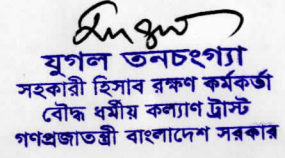 যুগল তনচংগ্যা
সহকারী হিসাব রক্ষণ কর্মকর্তা
বৌদ্ধ ধর্মীয় কল্যাণ ট্রাস্ট
গণপ্রজাতন্ত্রী বাংলাদেশ সরকার